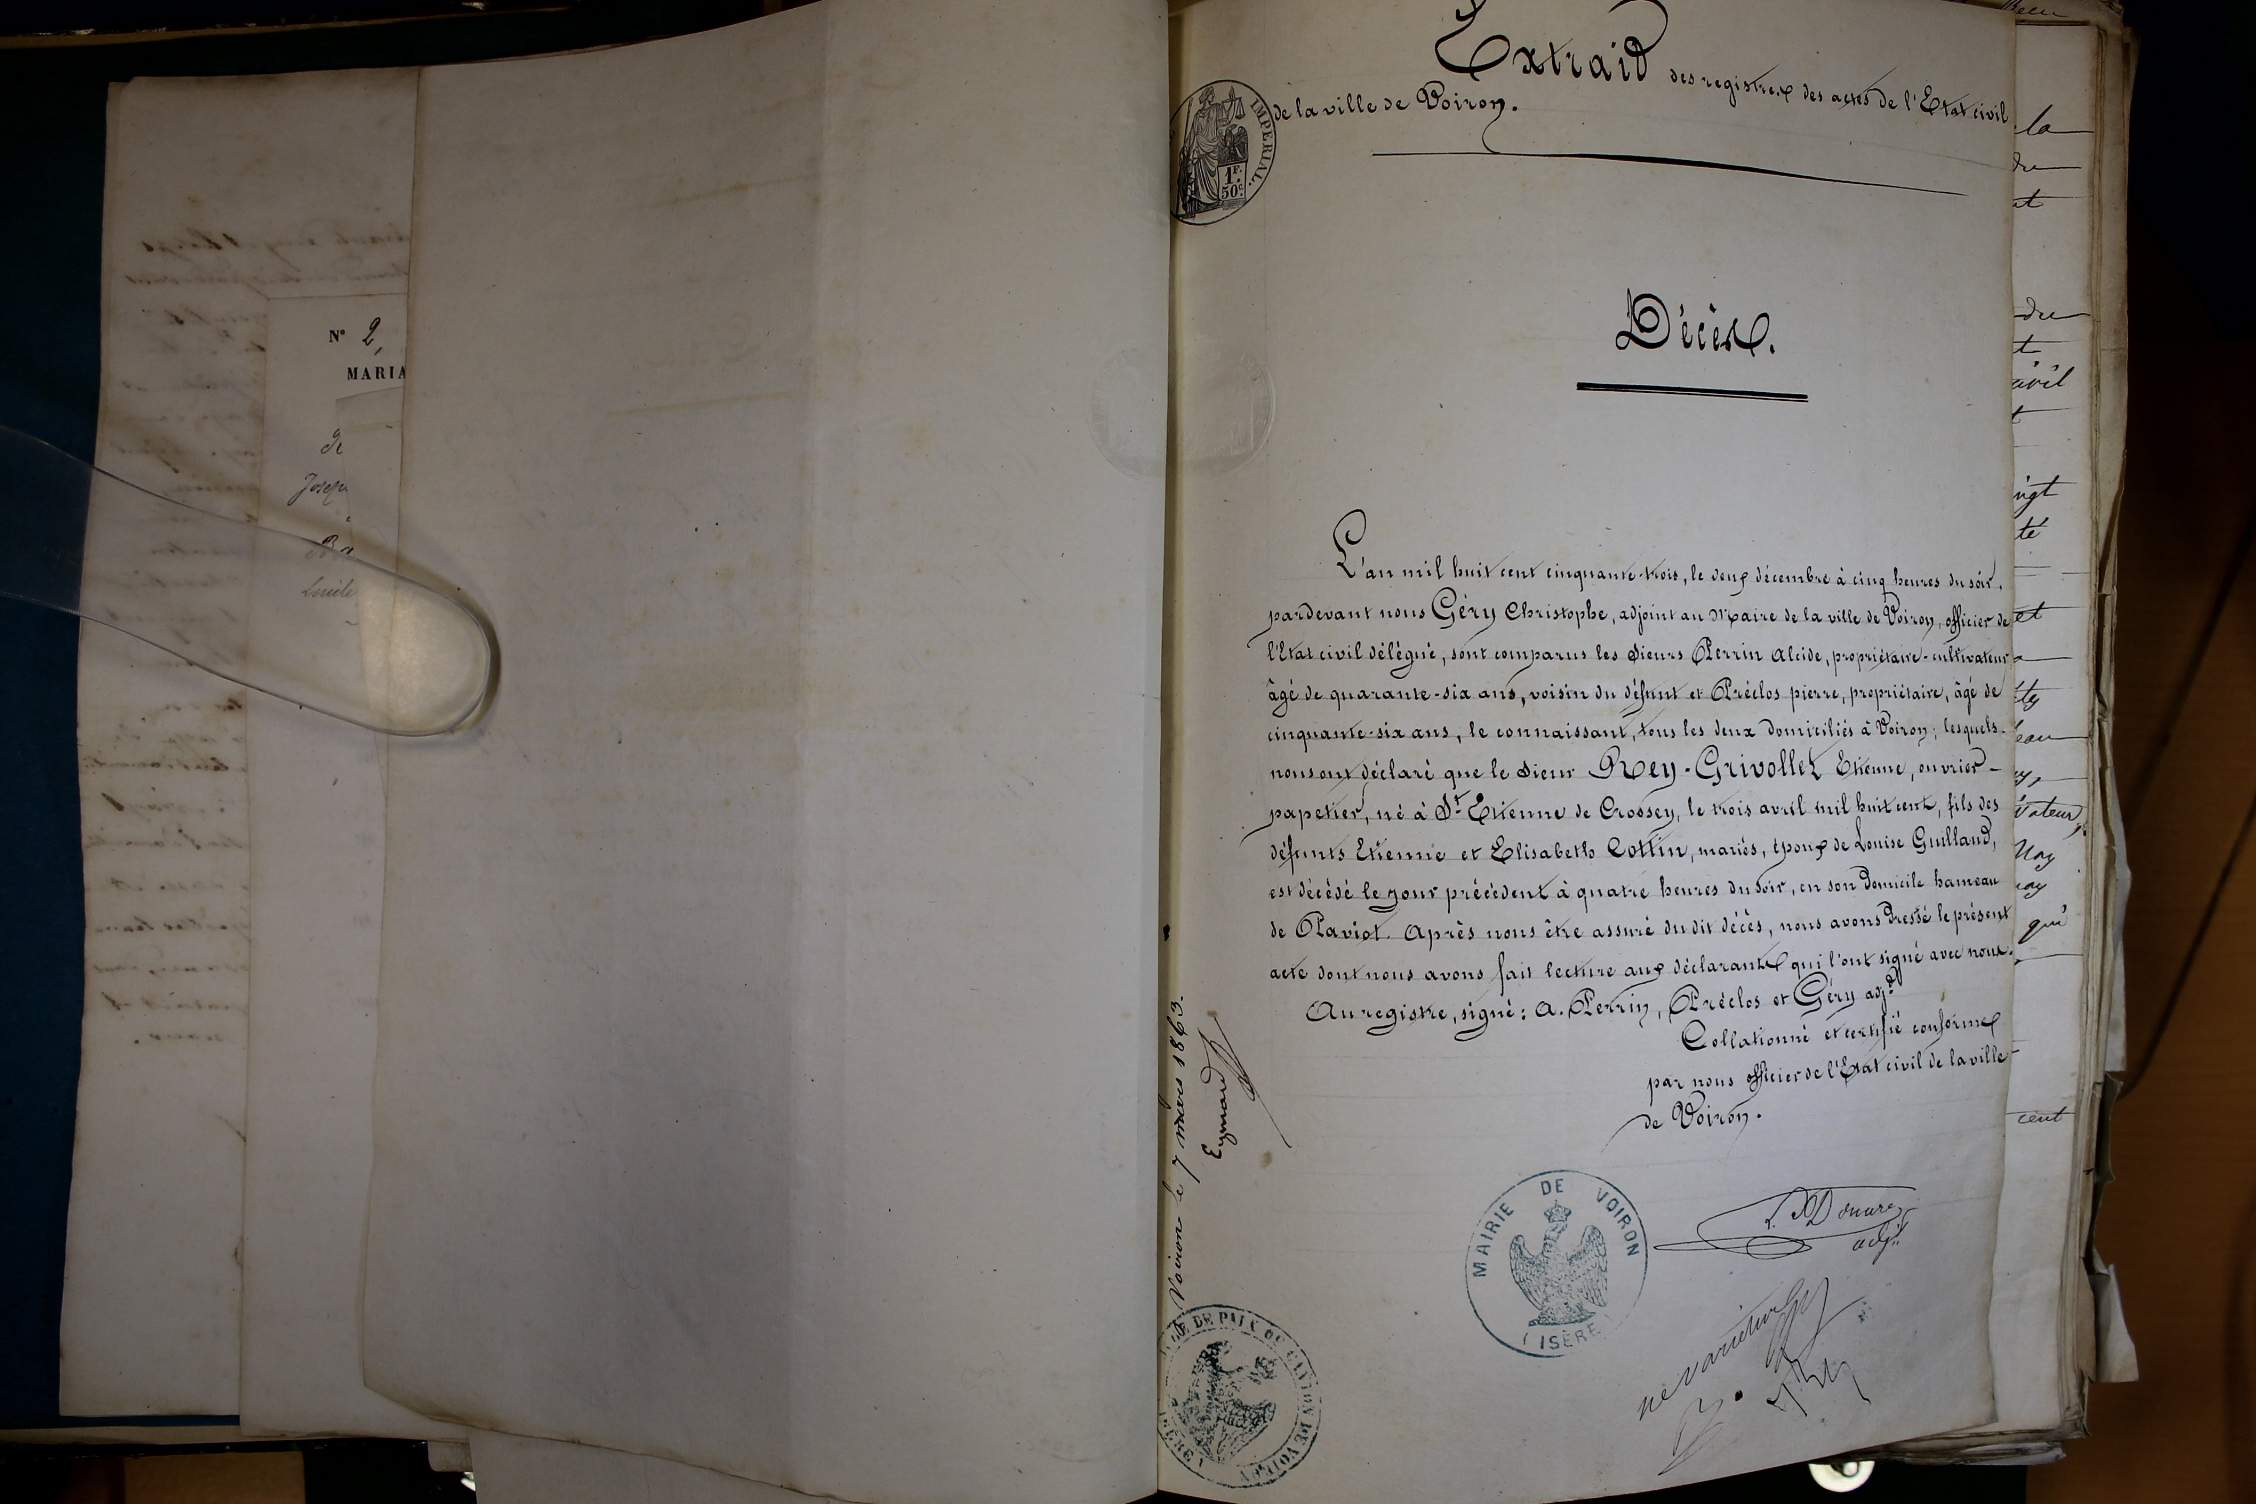 Nº 2,
MARIA
de
Josep
Ba
Lucile
Extrait des registres des actes de l'Etat civil
de la ville de Voiron.
IMPERIAL.
1F.
50c.
Décès.
L'an mil huit cent cinquante-trois, le deux décembre à cinq heures du soir,
pardevant nous Géry Christophe, adjoint au Maire de la ville de Voiron, officier de
l'Etat civil délégué, sont comparus les Sieurs Perrin Alcide, propriétaire-cultivateur
âgé de quarante-six ans, voisin du défunt et Préclos pierre, propriétaire, âgé de
cinquante-six ans, le connaissant, tous les deux domiciliés à Voiron; lesquels
nous ont déclaré que le Sieur Rey-Grivollet Etienne, ouvrier-
papetier, né à St Etienne de Crossey, le trois avril mil huit cent, fils des
défunts Etienne et Elisabeth Cottin, mariés, époux de Louise Guilland,
est décédé le jour précédent à quatre heures du soir, en son Domicile hameau
de Paviot. Après nous être assuré du dit décès, nous avons Dressé le présent
acte dont nous avons fait lecture aux déclarants qui l'ont signé avec nous.
Au registre, signé: A. Perrin, Préclos et Géry adjt
Collationné et certifié conforme
par nous officier de l'Etat civil de la ville
de Voiron.
adjt
MAIRIE DE VOIRON
(ISÈRE)
ne varietur
Voiron le 7 mars 1863.
Eymard
DE PAIX DU CANTON DE VOIRON
la
dre
at
dre
t
civil
t
ingt
té
et
eau
vateur
qui
cent